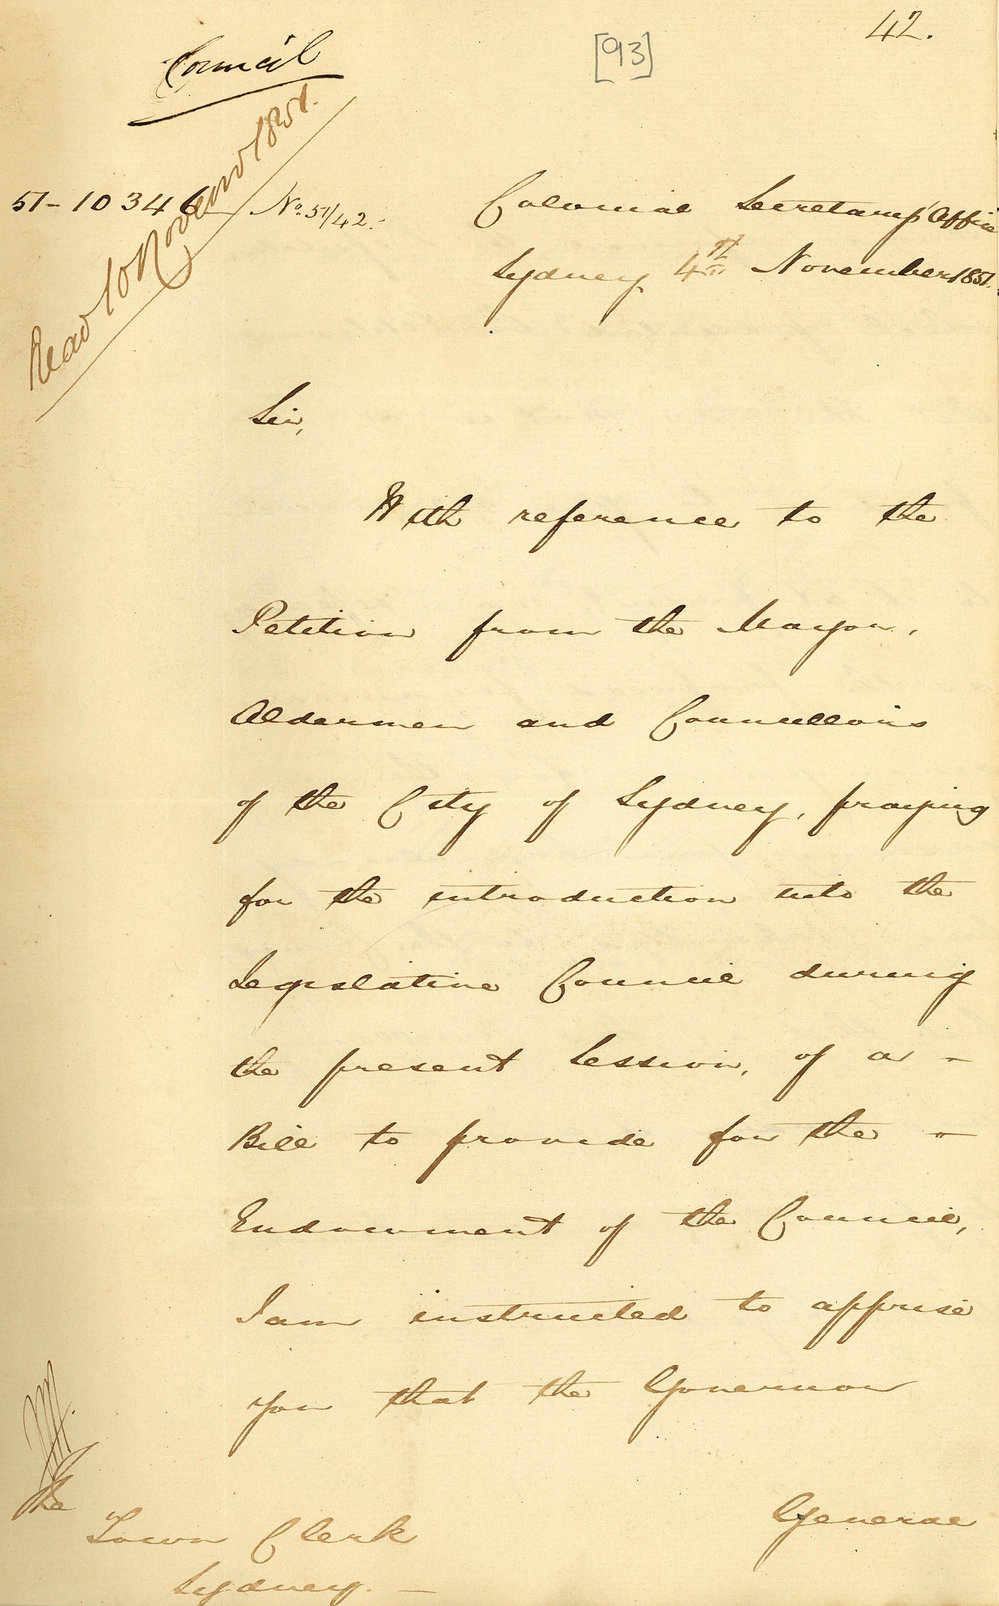 42.
[93]
Council
Read 10 November 1851.
51-10346 No. 51/42.
Colonial Secretary's Office
Sydney 4th November 1851.
Sir,
With reference to the
Petition from the Mayor,
Aldermen and Councillors
of the City of Sydney, praying
for the introduction into the
Legislative Council during
the present Session, of a -
Bill to provide for the -
Endowment of the Council,
I am instructed to apprise
you that the Governor
General
The
Town Clerk
Sydney. -